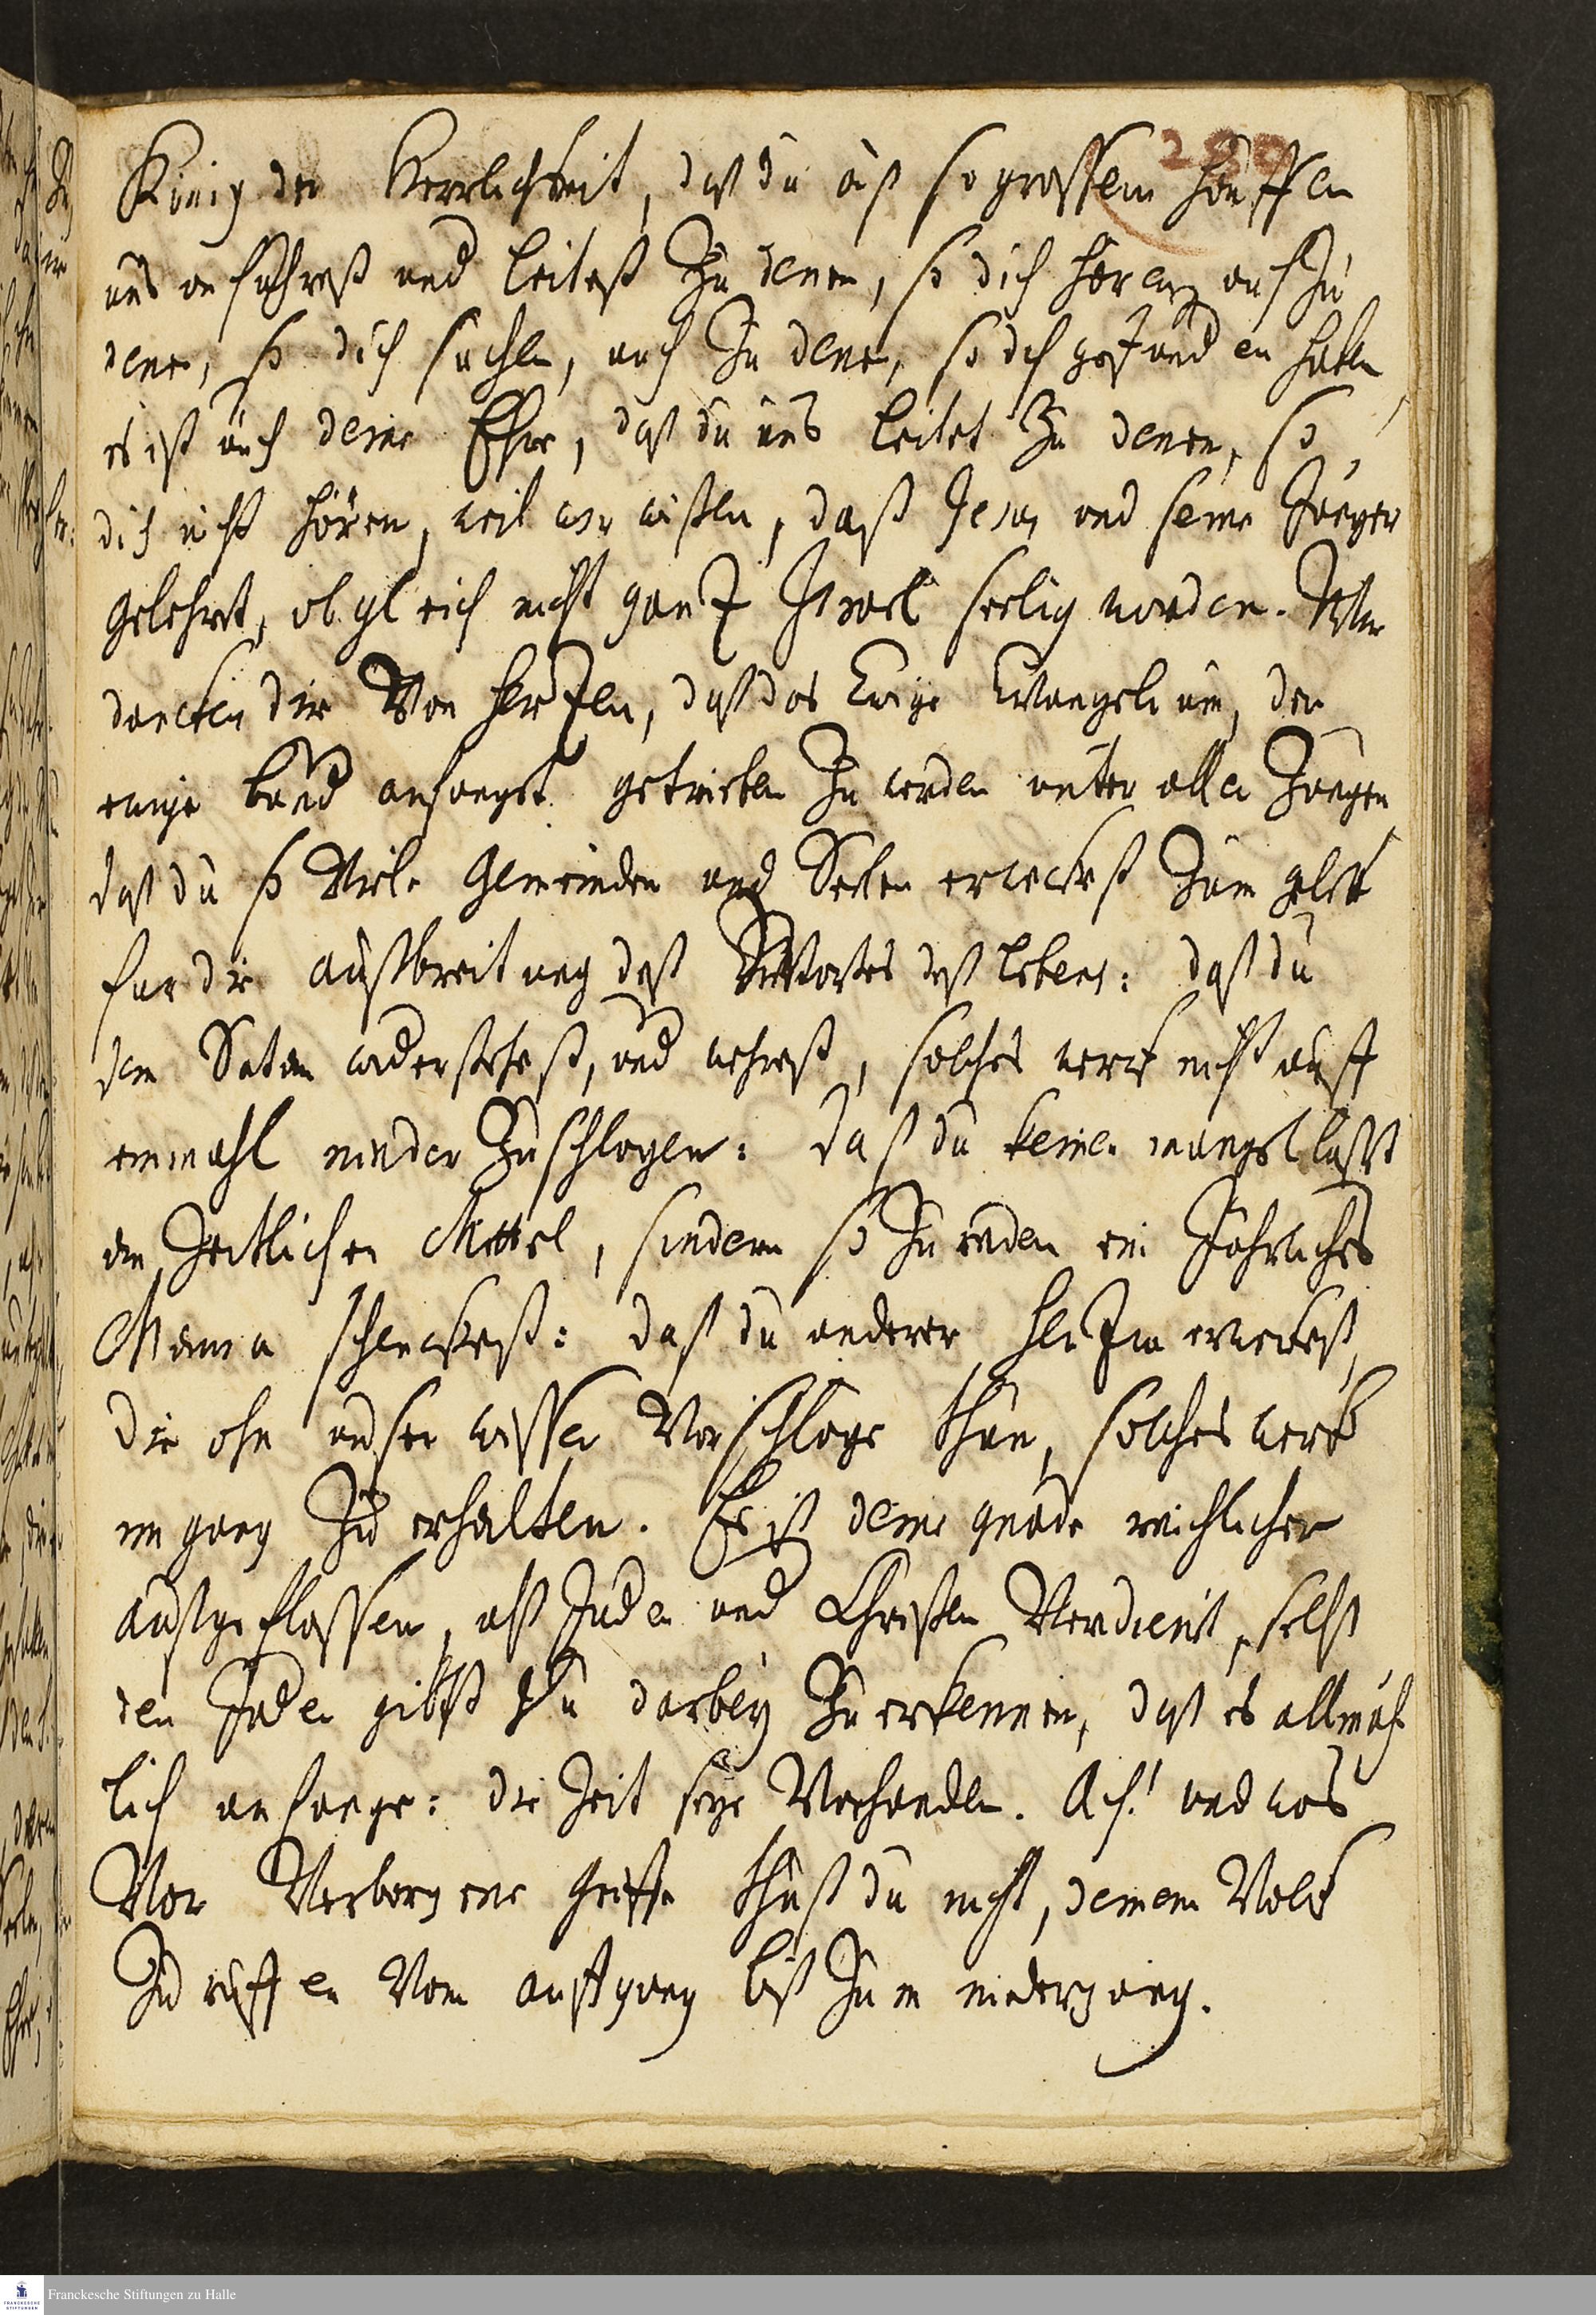 289
König der Herrlichkeit, daß du auß so grossem hauffen
uns anführest und leitest Zu denen, so dich hören, auch Zu
denen, so dich suchen, auch Zu denen, so dich gefunden haben,
es ist auch deine Ehre, daß du uns leitest Zu denen, so
dich nicht hören, weil wir wißen, daß Jesus und seine Jünger
gelehret, obgleich nicht gantz Israel seelig worden. Wir
dancken dir Von hertzen, daß das Ewige Evangelium, der
ewige bund anfangt getrieben Zu werden unter allen Zungen
daß du so Viele Gemeinden und Seelen erweckest Zum gebet
fur die außbreitung deß Wortes deß lebens: daß du
dem Satan widerstehest, und wehrest, solches werk nicht auff
einmahl nieder Zuschlagen: daß du keinen mangel laßst
an Zeitlichen Mittel, sondern so Zu reden ein Jährliches
Manna schenckest: daß du anderer hertzen erweckest,
die ohn unser wissen Vorschläge thun, solches werk
im gang Zu erhalten. Es ist deine gnade reichlicher
außgeflossen, alß Juden und Christen Verdienet, selbst
den Juden gibst du darbey Zu erkennen, daß es allmäh
lich anfange: die Zeit seye Vorhanden. Ach! und was
Vor Verborgene Griffe thust du nicht, deinem Volk
Zu ruffen Vom auffgang biß Zum niedergang.
Franckesche Stiftungen zu Halle